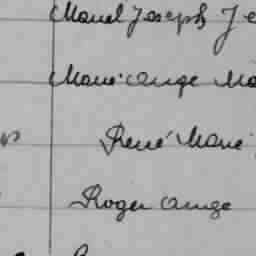 Marcel Joseph Je
Marie ange Ma
René Marie
Roger ange